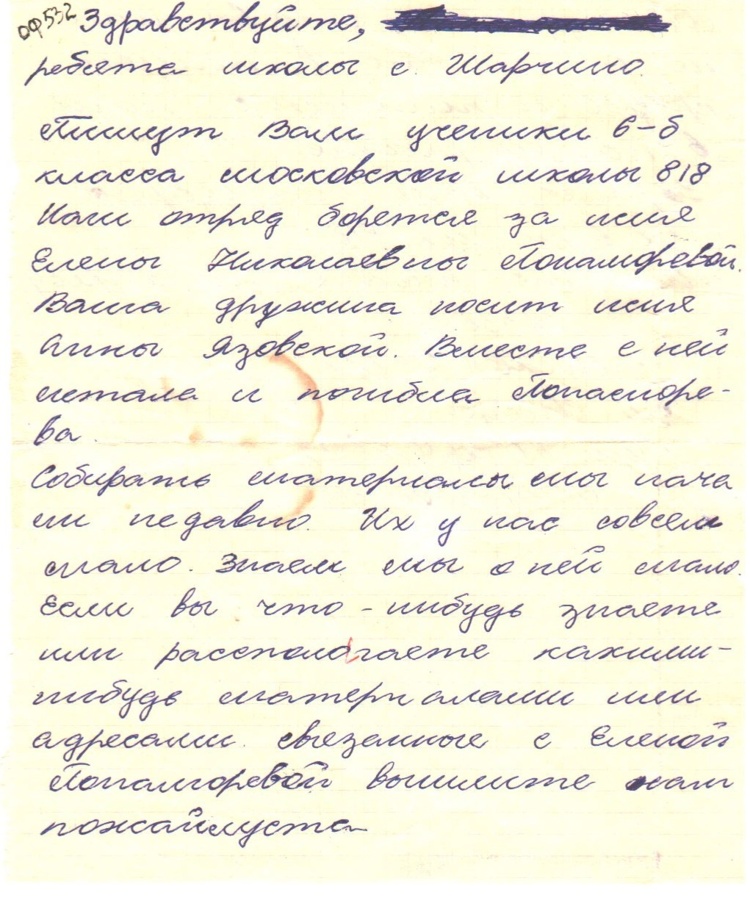 ОФ532 Здравствуйте,
ребята школы с. Шарчино.
Пишут Вам ученики 6-б
класса московской школы 818
Наш отряд борется за имя
Елены Николаевны Понаморевой.
Ваша дружина носит имя
Анны Язовской. Вместе с ней
летала и погибла Понаморе-
ва.
Собирать материалы мы нача
ли недавно. Их у нас совсем
мало. Знаем мы о ней мало.
Если вы что-нибудь знаете
или рассполагаете какими-
нибудь материалами или
адресами. связанные с Еленой
Понаморевой вышлите нам
пожайлуста